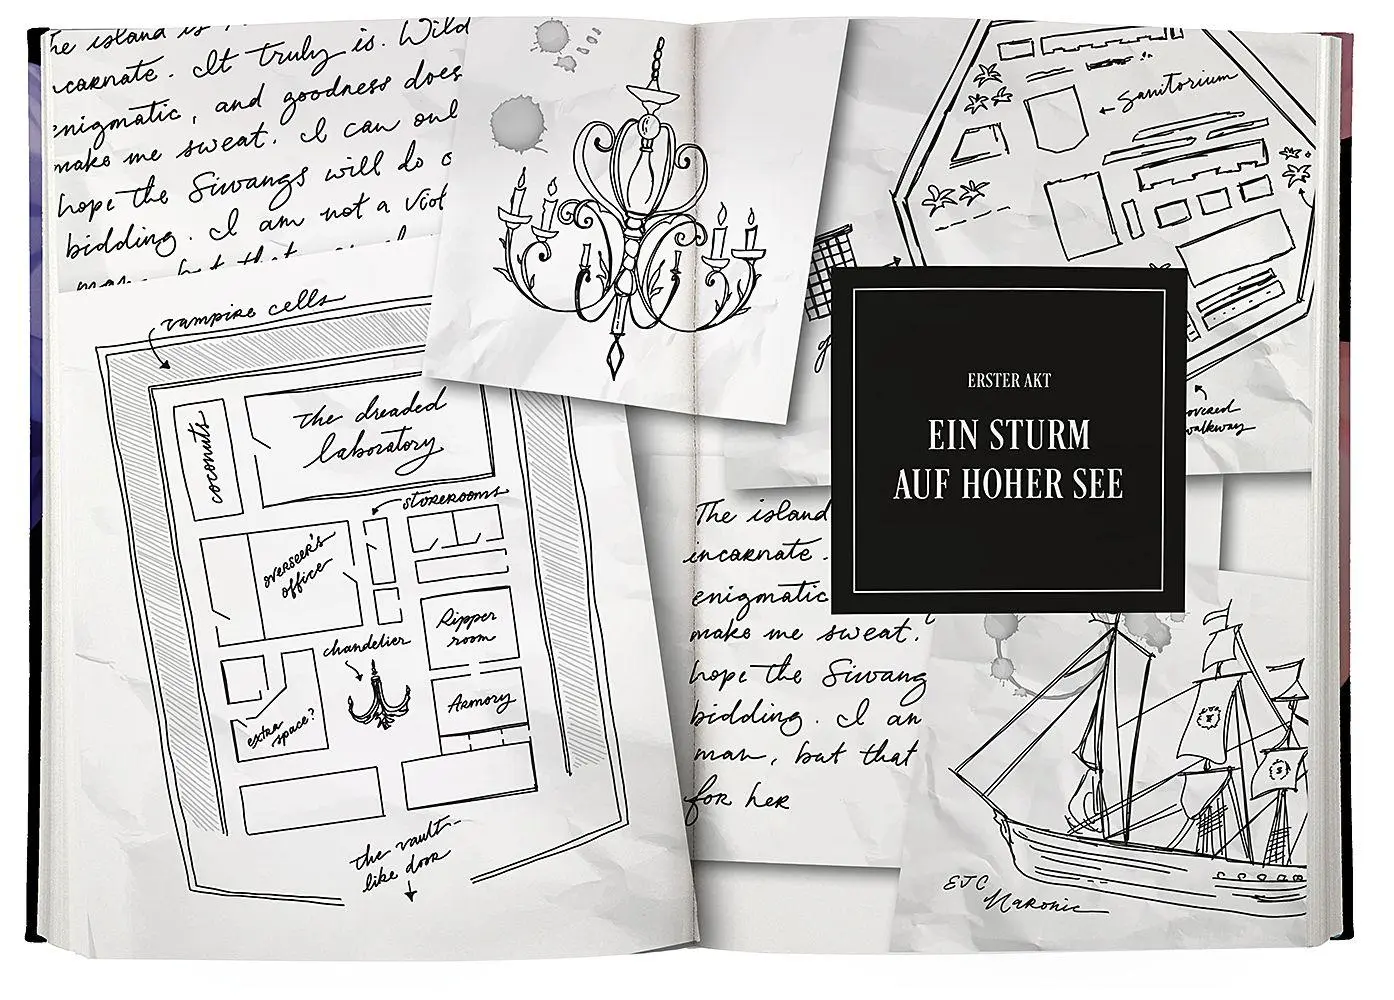 he island is
ncarnate. It truly is. Wild
enigmatic, and goodness does
make me sweat. I can onl
hope the Siwangs will do o
bidding. I am not a viol
man, but that
vampire cells
coconuts
the dreaded
laboratory
storerooms
overseer's
office
chandelier
Ripper
room
Armory
extra
space?
the vault-
like door
Sanitorium
overed
walkway
ERSTER AKT
EIN STURM
AUF HOHER SEE
The island
incarnate.
enigmatic
make me sweat.
hope the Siwang
bidding. I am
man, but that
for her
EJC
Naronic